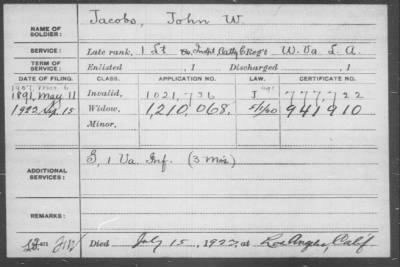 NAME OF SOLDIER: Jacobs, John W.
SERVICE: Late rank, 1 Lt Co., Indpt Batty E Reg't W. Va. L. A.
TERM OF SERVICE: Enlisted , 1 Discharged , 1
DATE OF FILING. CLASS. APPLICATION NO. LAW. CERTIFICATE NO.
1907, Mar 6
1891, May 11 Invalid, 1021,736 J 777,722
1922 Aug. 15 Widow, 1,210,068. 941910
Minor,
ADDITIONAL SERVICES: G, 1 Va. Inf. (3 mos)
REMARKS:
Died July 15, 1922, at Los Angeles, Calif